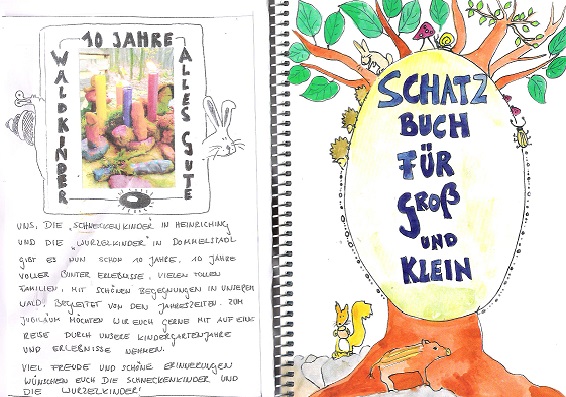 10 JAHRE
WALDKINDER
ALLES GUTE
UNS, DIE „SCHNECKENKINDER IN HEINRICHING
UND DIE „WURZELKINDER" IN DOMMELSTADL
GIBT ES NUN SCHON 10 JAHRE. 10 JAHRE
VOLLER BUNTER ERLEBNISSE, VIELEN TOLLEN
FAMILIEN, MIT SCHÖNEN BEGEGNUNGEN IN UNSEREM
WALD, BEGLEITET VON DEN JAHRESZEITEN. ZUM
JUBILÄUM MÖCHTEN WIR EUCH GERNE MIT AUF EINE
REISE DURCH UNSERE KINDERGARTENJAHRE
UND ERLEBNISSE NEHMEN.
VIEL FREUDE UND SCHÖNE ERINNERUNGEN
WÜNSCHEN EUCH DIE SCHNECKENKINDER UND
DIE WURZELKINDER!
SCHATZ
BUCH
FÜR
GROß
UND
KLEIN